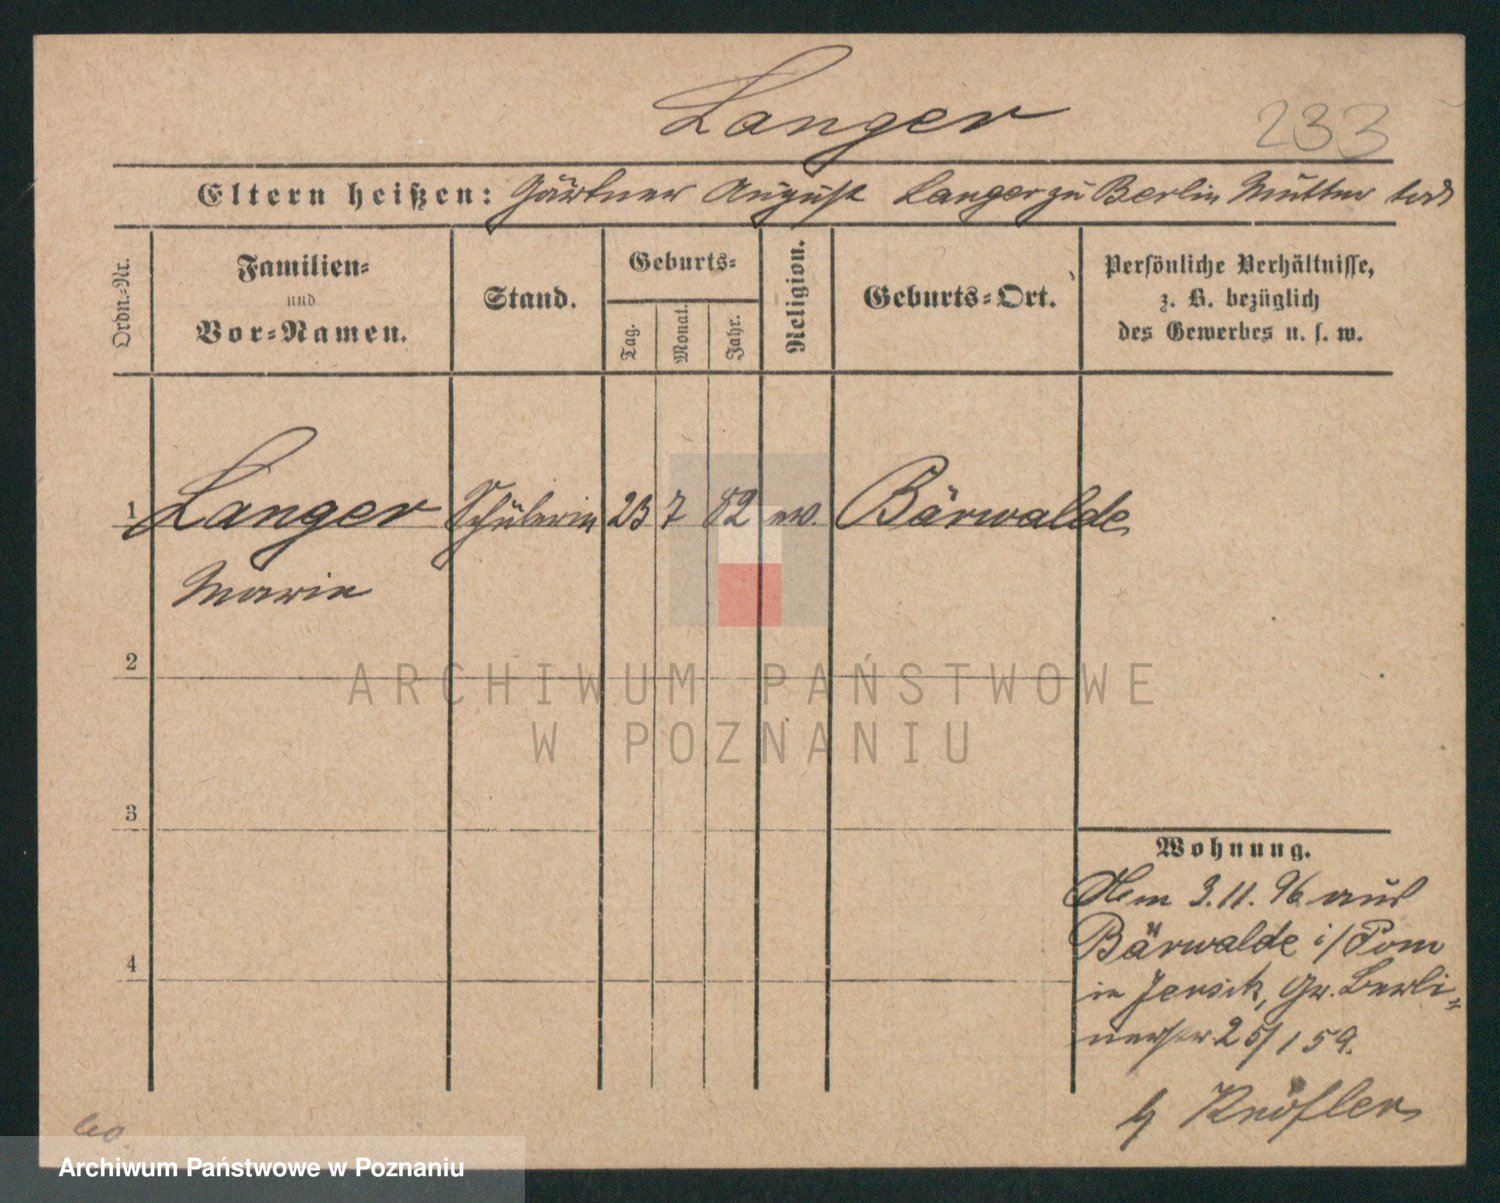 Langer
233
Eltern heißen: Gärtner August Langer zu Berlin Mutter tod
Ordn.-Nr.
Familien-
und
Vor-Namen.
Stand.
Geburts-
Tag.
Monat.
Jahr.
Religion.
Geburts-Ort.
Persönliche Verhältnisse,
z. B. bezüglich
des Gewerbes u. s. w.
1 Langer Schülerin 23 7 82 ev. Bärwalde
Marie
2
ARCHIWUM PAŃSTWOWE
W POZNANIU
3
Wohnung.
3.11.96 aus
Bärwalde i/Pom
4
in Jersitz, Gr. Berli-
nerstr 25/159.
Archiwum Państwowe w Poznaniu